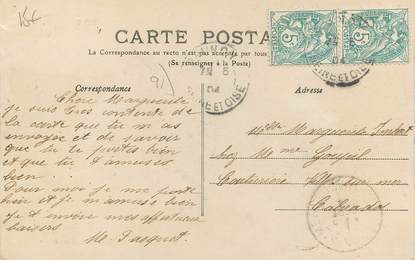 15€
CARTE POSTALE
La Correspondance au recto n'est pas
(Se renseigner à la Poste)
91
Correspondance
Adresse
5
5
SEINE ET OISE
04
SEINE ET OISE
04
Chère Marguerite
je suis très contente de
la carte que tu m'as
envoyée et de savoir
que tu te portes bien
et que tu t'amuses
bien
Pour moi je me porte
bien et je m'amuse bien
Je t'envoie mes affectueux
baisers
M.
Mlle Marguerite
chez Mme
Villers sur mer
Calvados